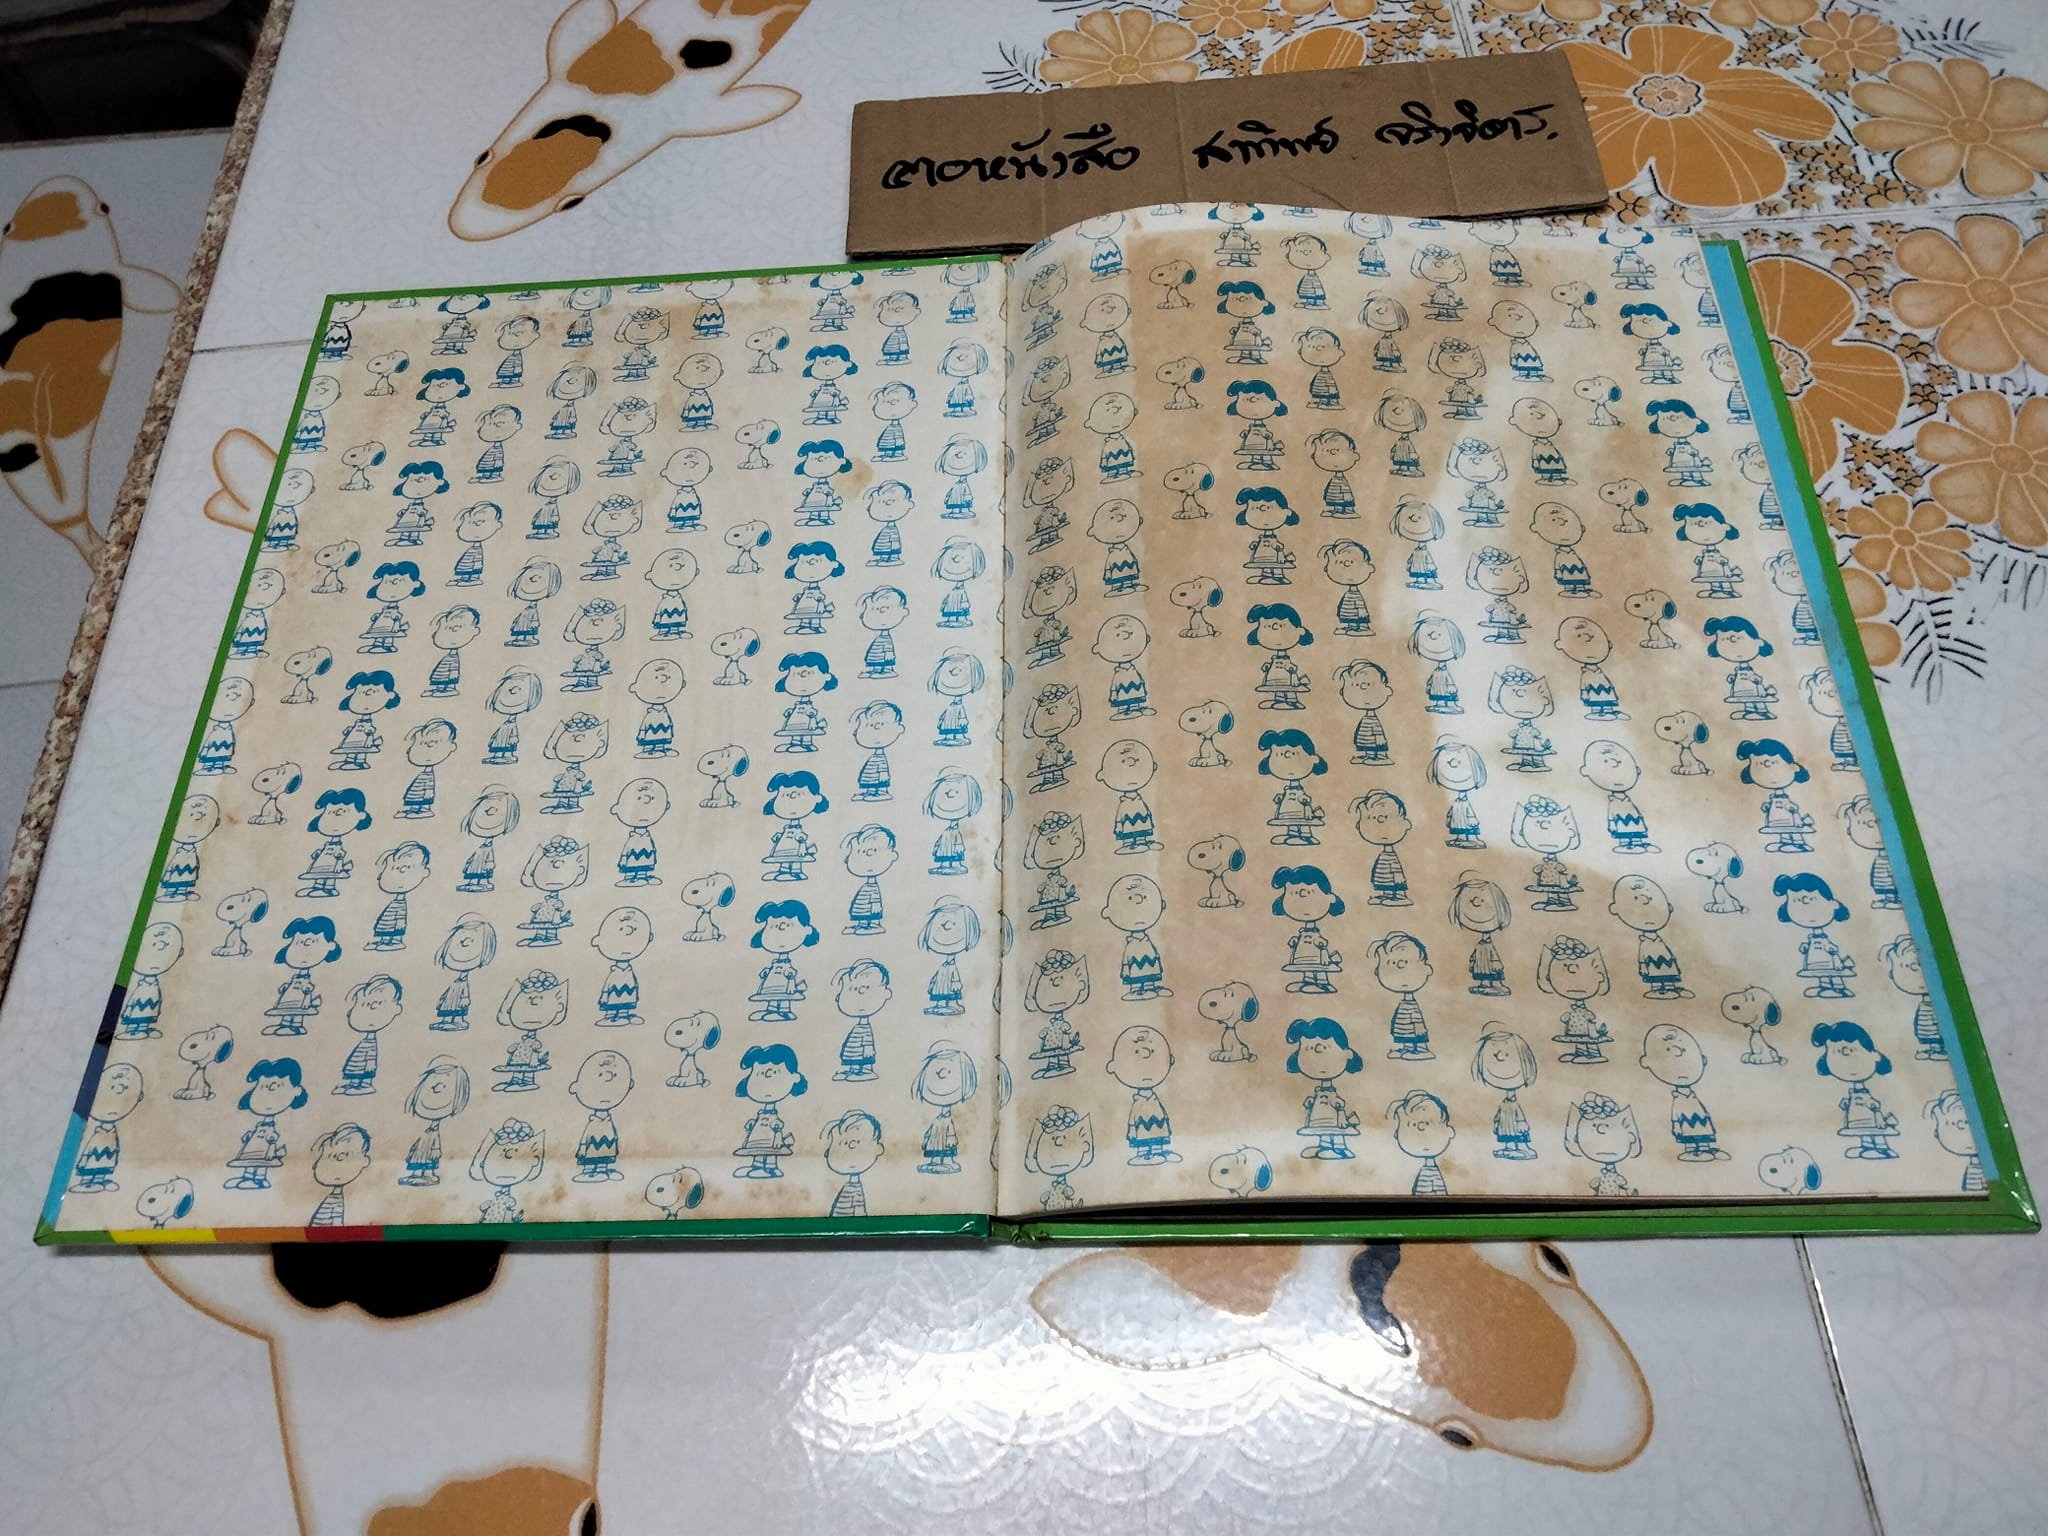 ตอหนังสือ สาทิพย์ จริงจิตร.